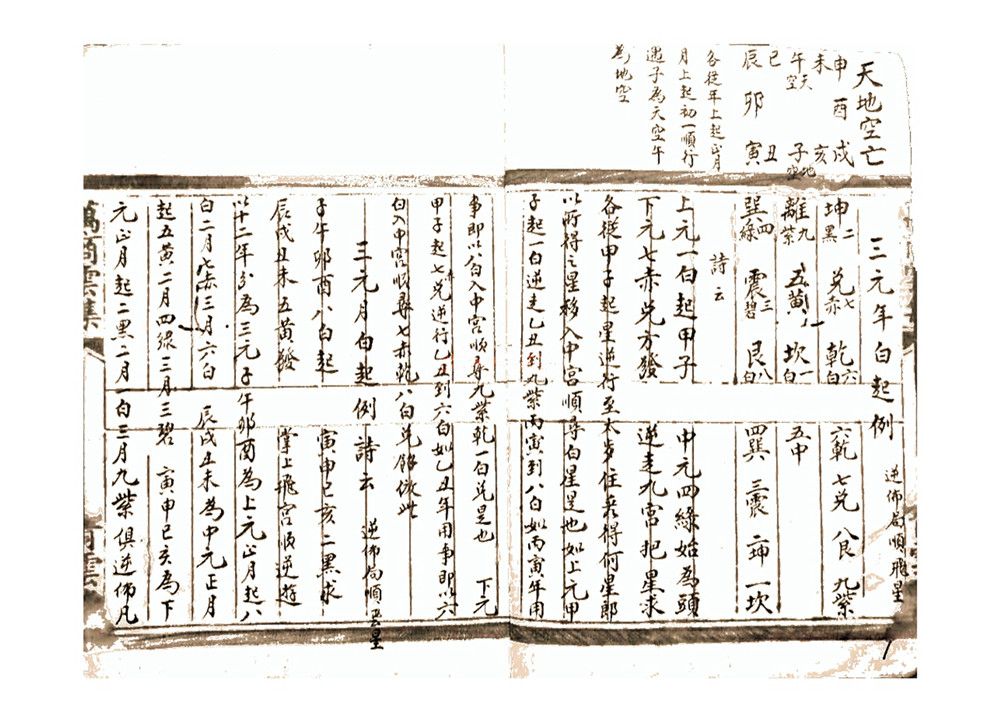 天地空亡
申酉戌
未亥
午天空子地空
巳丑
辰卯寅
各從年上起正月
月上起初一順行
遇子為天空午
為地空
三元年白起例 逆佈局順飛星
坤二黑 兌七赤 乾六白 六乾七兌八艮九紫
離九紫 五黃 坎一白 五中
巽四綠 震三碧 艮八白 四巽三震二坤一坎
詩云
上元一白起甲子 中元四綠始為頭
下元七赤兌方發 逆走九宮把星求
各從甲子起星逆行至太歲住看得何星郎
以所得之星移入中宮順尋白星是地如上元甲
子起一白逆走乙丑到九紫丙寅到八白如丙寅年用
事即以八白入中宮順尋九紫乾一白兌是也 下元
甲子起七兌逆行乙丑到六白如乙丑年用事即以六
白入中宮順尋七赤乾八白兌餘倣此
三元月白起例詩云 逆佈局順飛星
子午卯酉八白起 寅申巳亥二黑求
辰戌丑未五黃發 掌上飛宮順逆遊
以十二年分為三元子午卯酉為上元正月起八
白二月七赤三月六白 辰戌丑未為中元正月
起五黃二月四綠三月三碧 寅申巳亥為下
元正月起二黑二月一白三月九紫俱逆佈凡
萬商雲集
商雲
1